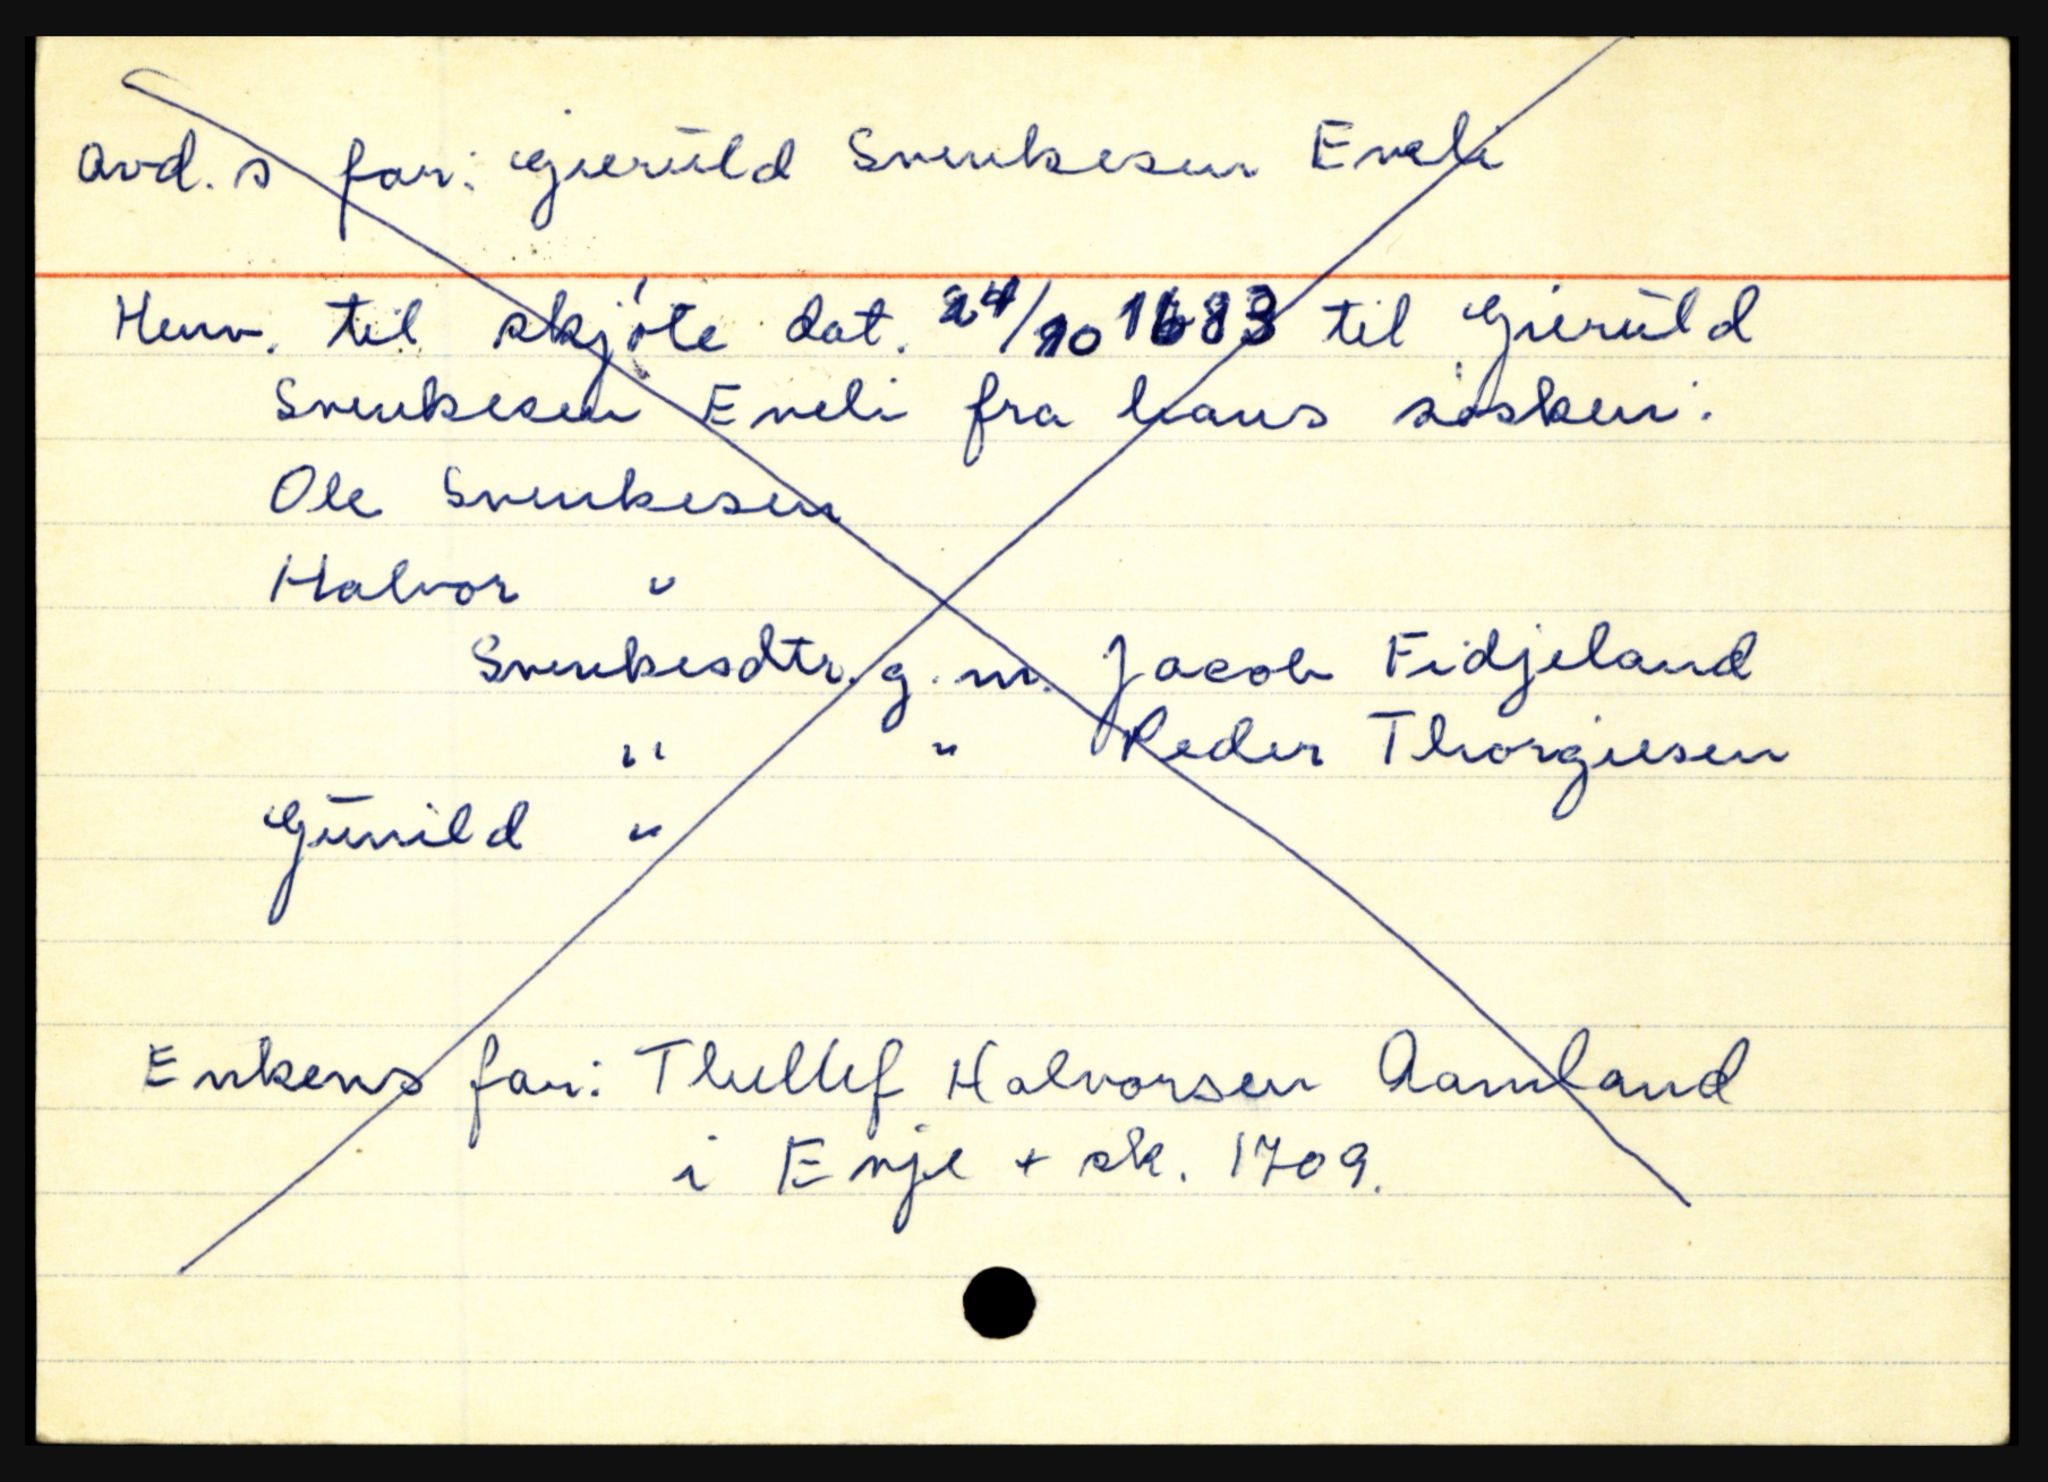 Avd. s far: Gierüld Svenkesen Eveli
Henv. til skjøte dat. 24/10 1683 til Gierüld
Svenkesen Eveli fra hans søsken:
Ole Svenkesen
Halvor "
Svenkesdtr. g. m. Jacob Fidjeland
" " Peder Thorgiesen
Günild "
Enkens far: Thellef Halvorsen Aamland
i Evje + sk. 1709.